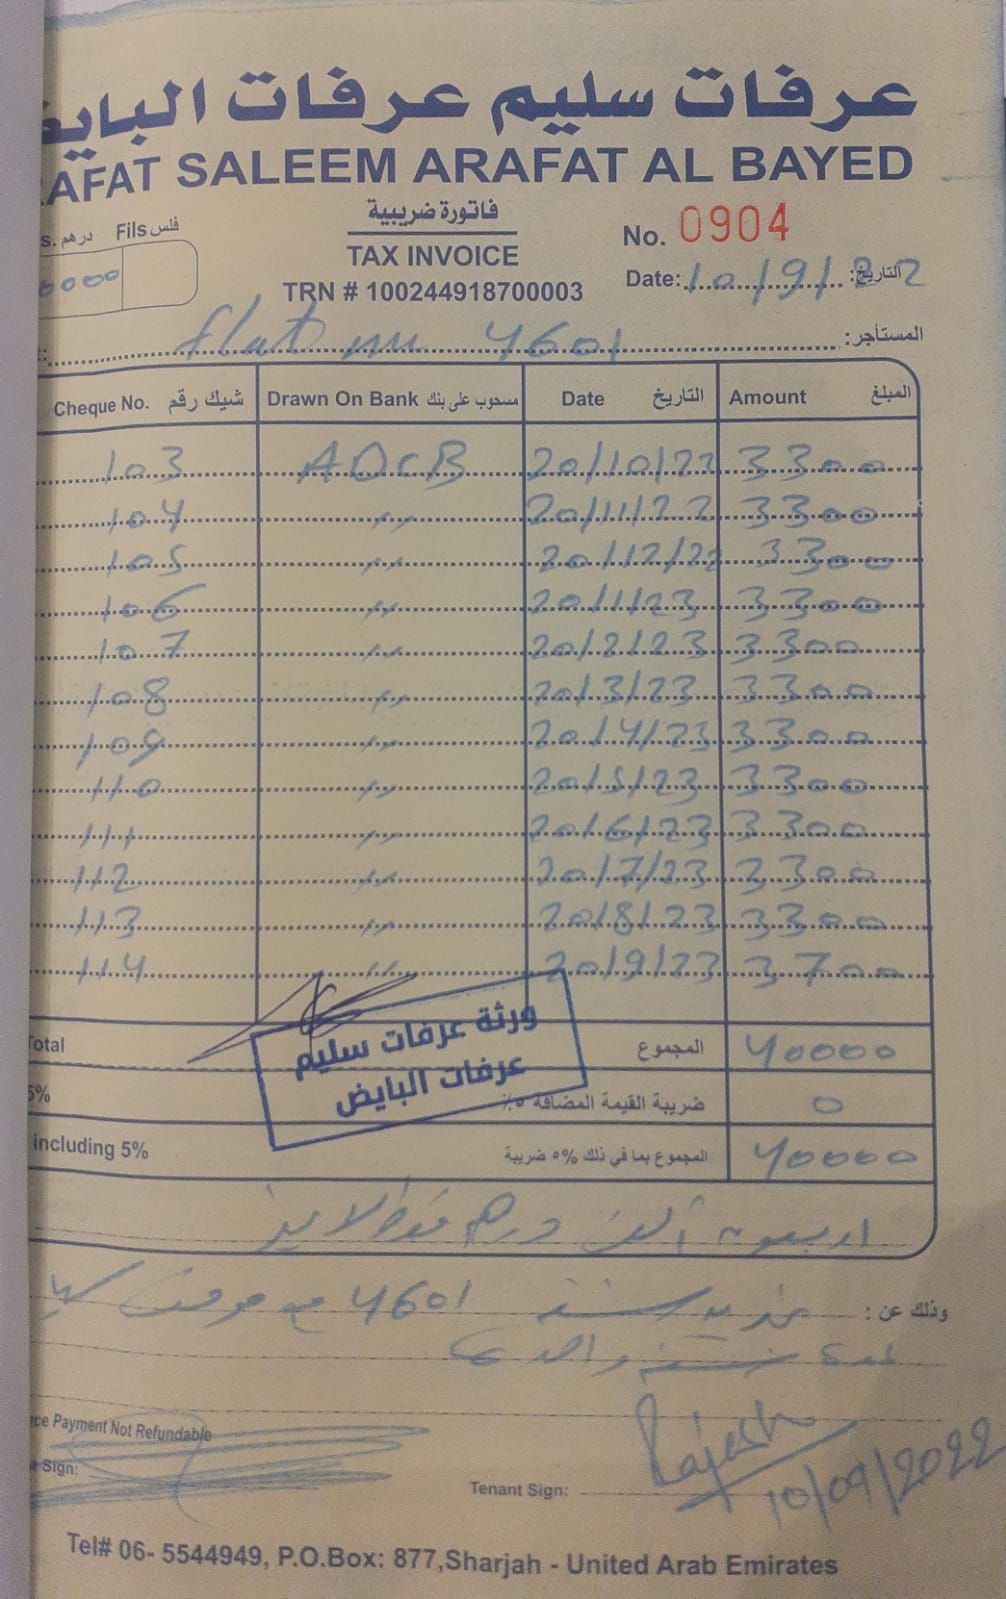 عرفات سليم عرفات البايض
RAFAT SALEEM ARAFAT AL BAYED
فاتورة ضريبية
TAX INVOICE
TRN # 100244918700003
s. درهم Fils فلس
0000
No. 0904
Date: 10/9/22 التاريخ:
flat no 4601 المستأجر:
Cheque No. شيك رقم Drawn On Bank مسحوب على بنك Date التاريخ Amount المبلغ
103 ADCB 20/10/22 3300
104 " 20/11/22 3300
105 " 20/12/22 3300
106 " 20/1/23 3300
107 " 20/2/23 3300
108 " 20/3/23 3300
109 " 20/4/23 3300
110 " 20/5/23 3300
111 " 20/6/23 3300
112 " 20/7/23 3300
113 " 20/8/23 3300
114 " 20/9/23 3700
ورثة عرفات سليم
عرفات البايض
Total المجموع 40000
5% ضريبة القيمة المضافة ٥٪ 0
including 5% المجموع بما في ذلك ٥% ضريبة 40000
اربعون ألف درهم فقط لاغير
وذلك عن : 4601 مع موقف
سنة واحدة
ce Payment Not Refundable
Sign:
Rajesh
Tenant Sign:
10/09/2022
Tel# 06- 5544949, P.O.Box: 877,Sharjah - United Arab Emirates